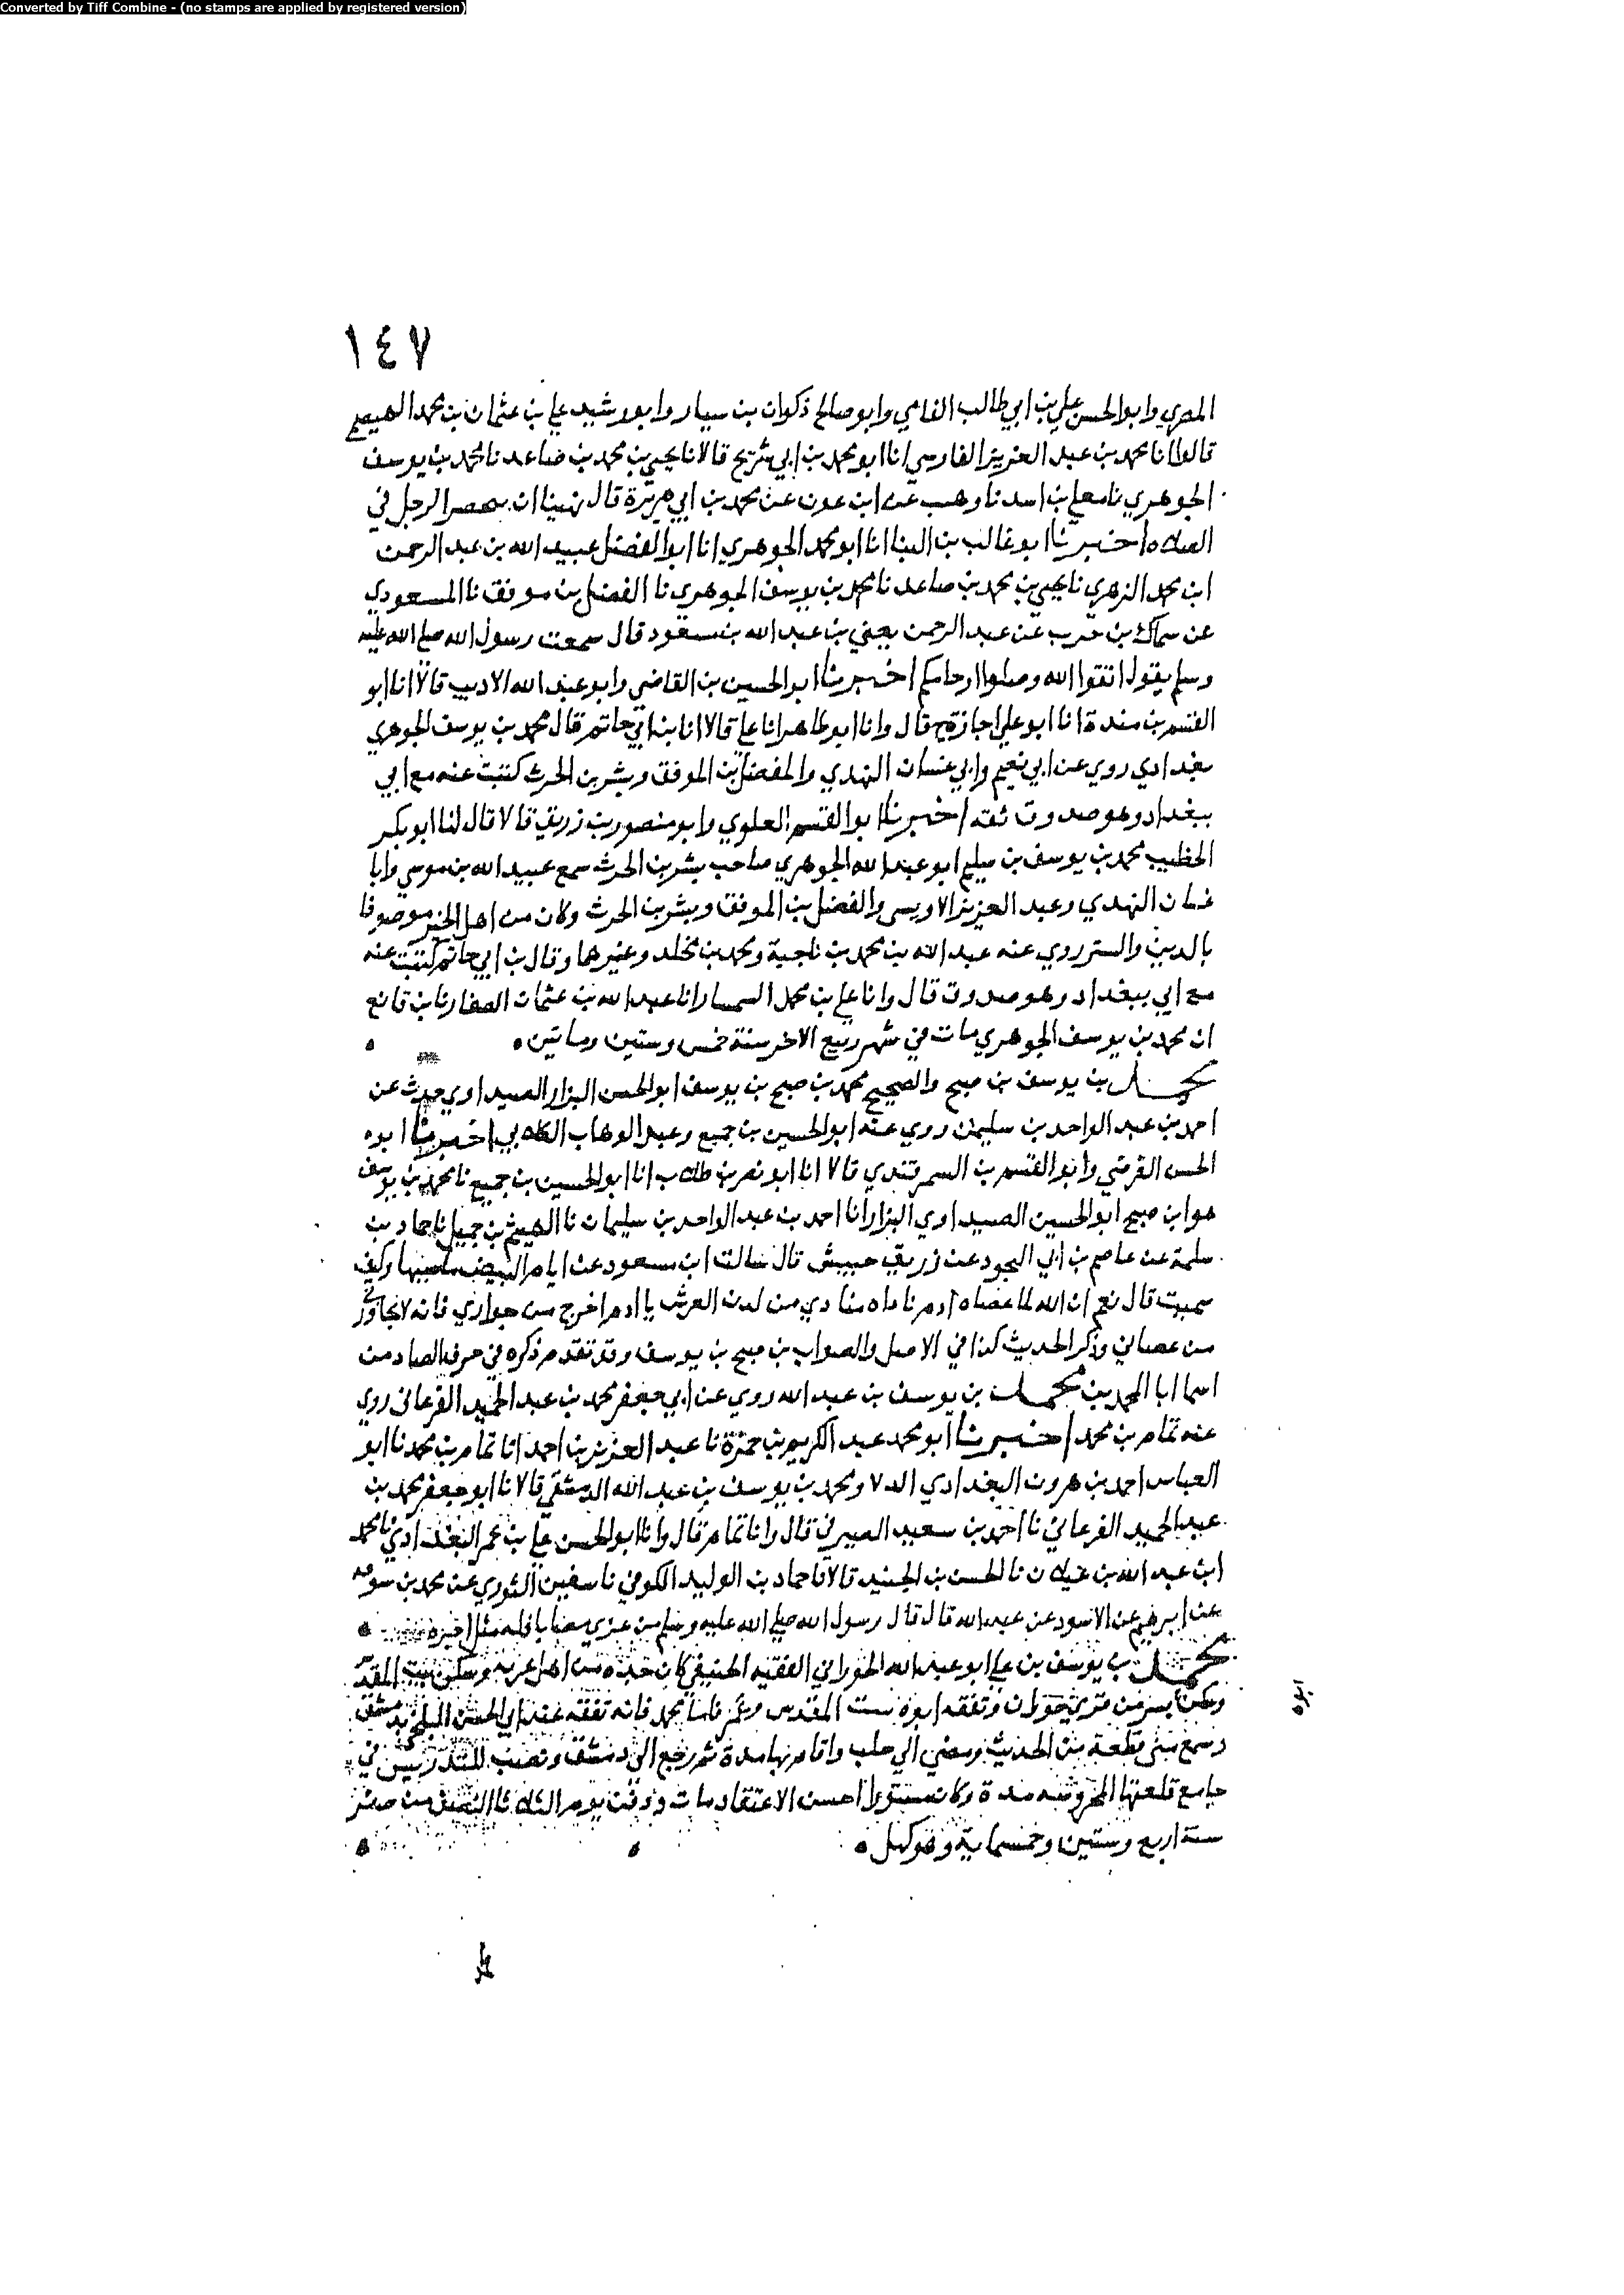 Converted by Tiff Combine - (no stamps are applied by registered version)
١٤٧
المصري وابو الحسن علي بن ابي طالب القامي وابو صالح ذكوان بن سيار وابو رشيد علي بن عثمان بن محمد الهيصم
قالوا انا محمد بن عبد العزيز الفارسي انا ابو محمد بن ابي شريح قالا نا يحيي بن محمد بن صاعد نا محمد بن يوسف
الجوهري نا معلي بن اسد نا وهب عن ابن عون عن محمد بن ابي هريرة قال نهينا ان يحصر الرجل في
الصلاه اخبرنا ابو غالب بن البنا انا ابو محمد الجوهري انا ابو الفضل عبيد الله بن عبد الرحمن
ابن محمد الزهري نا يحيي بن محمد بن صاعد نا محمد بن يوسف الجوهري نا الفضل بن موفق نا المسعودي
عن سماك بن حرب عن عبد الرحمن يعني بن عبد الله بن مسعود قال سمعت رسول الله صلي الله عليه
وسلم يقول اتقوا الله وصلوا ارحامكم اخبرنا ابو الحسين بن القاضي وابو عبد الله الاديب قالا انا ابو
القسم بن مندة انا ابو علي اجازة ح قال وانا ابو طاهر انا علي قالا انا بن ابي حاتم قال محمد بن يوسف الجوهري
بغدادي روي عن ابي نعيم وابي غسان النهدي والمفضل بن الموفق وبشر بن الحرث كتبت عنه مع ابي
ببغداد وهو صدوق ثقه اخبرنا ابو القسم العلوي وابو منصور بن زريق قالا قال لنا ابو بكر
الخطيب محمد بن يوسف بن سليم ابو عبد الله الجوهري صاحب بشر بن الحرث سمع عبيد الله بن موسي وابا
غسان النهدي وعبد العزيز الاويسي والفضل بن الموفق وبشر بن الحرث وكان من اهل الخير موصوفا
بالدين والستر روي عنه عبد الله بن محمد بن ناجية ومحمد بن مخلد وغيرهما وقال بن ابي حاتم كتبت عنه
مع ابي ببغداد وهو صدوق قال وانا علي بن محمد السمسار انا عبد الله بن عثمان الصفار نا بن قانع
ان محمد بن يوسف الجوهري مات في شهر ربيع الاخر سنة خمس وستين وماتين ه
محمد بن يوسف بن صبح والصحيح محمد بن صبح بن يوسف ابو الحسن البزار الصيداوي حدث عن
احمد بن عبد الواحد بن سليمن روي عنه ابو الحسين بن جميع وعبد الوهاب الكلابي اخبرنا ابو ه
الحسن الفرضي وابو القسم بن السمرقندي قالا انا ابو نصر بن طلاب انا ابو الحسين بن جميع نا محمد بن يوسف
هو ابن صبح ابو الحسين الصيداوي البزار انا احمد بن عبد الواحد بن سليمان نا الهيثم بن جميل نا حماد بن
سلمة عن عاصم بن ابي النجود عن زر بن حبيش قال سالت ابن مسعود عن ايام البيض ما سببها وكيف
سميت قال نعم ان الله لما عصاه ادم ناداه منادي من لدن العرش يا ادم اخرج من جواري فانه لا يجاورني
من عصاني وذكر الحديث كذا في الاصل والصواب بن صبح بن يوسف وقد تقدم ذكره في حرف الصاد من
اسما ابا المحمدين محمد بن يوسف بن عبد الله روي عن ابي جعفر محمد بن عبد الحميد الفرغاني روي
عنه تمام بن محمد اخبرنا ابو محمد عبد الكريم بن حمزة نا عبد العزيز بن احمد انا تمام بن محمد نا ابو
العباس احمد بن هرون البغدادي ومحمد بن يوسف بن عبد الله الدمشقي قالا نا ابو جعفر محمد بن
عبد الحميد الفرغاني نا احمد بن سعيد الصيرفي قال وانا تمام قال وانا ابو الحسن علي بن عمر البغدادي نا محمد
ابن عبد الله بن غيلان نا الحسن بن الجنيد قالا نا حماد بن الوليد الكوفي نا سفين الثوري عن محمد بن سوقه
عن ابرهيم عن الاسود عن عبد الله قال قال رسول الله صلي الله عليه وسلم من عزي مصابا فله مثل اجره
محمد بن يوسف بن علي ابو عبد الله الحوراني الفقيه الحنيفي كان جده من اهل غزنه وسكن بيت المقدس
وسكن بسر من قرية حوران وتفقه ابوه ببيت المقدس فاما محمد فانه تفقه عند ابي الحسن البلخي بدمشق
وسمع مني قطعة من الحديث ومضي الي حلب واقام بها مدة ثم رجع الي دمشق ونصب للتدريس في
جامع قلعتها المحروسه مدة وكان مستورا حسن الاعتقاد مات ودفن يوم الثلاثا النصف من صفر
سنة اربع وستين وخمسماية وهو كهل ه
ابوه